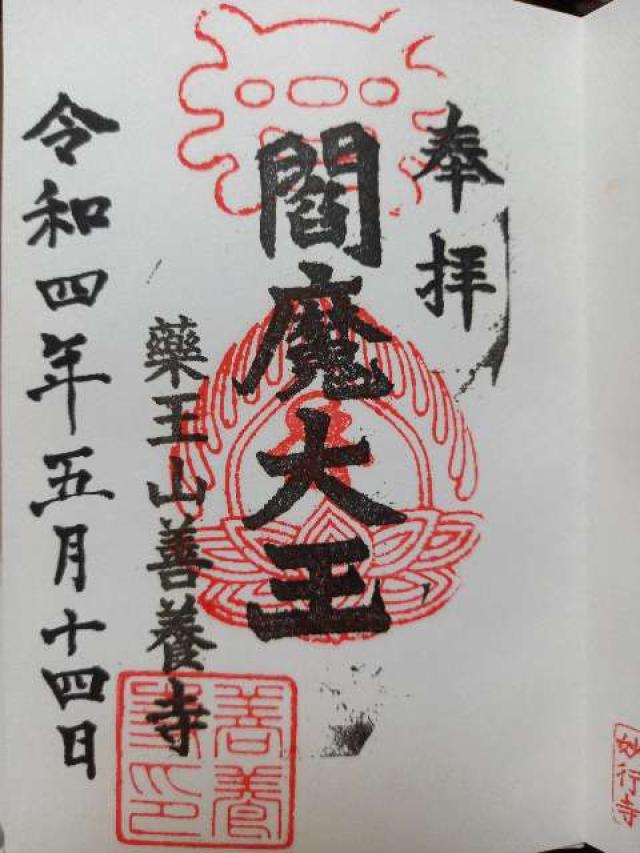 奉拝
閻魔大王
藥王山善養寺
令和四年五月十四日
善養
寺印
妙行寺